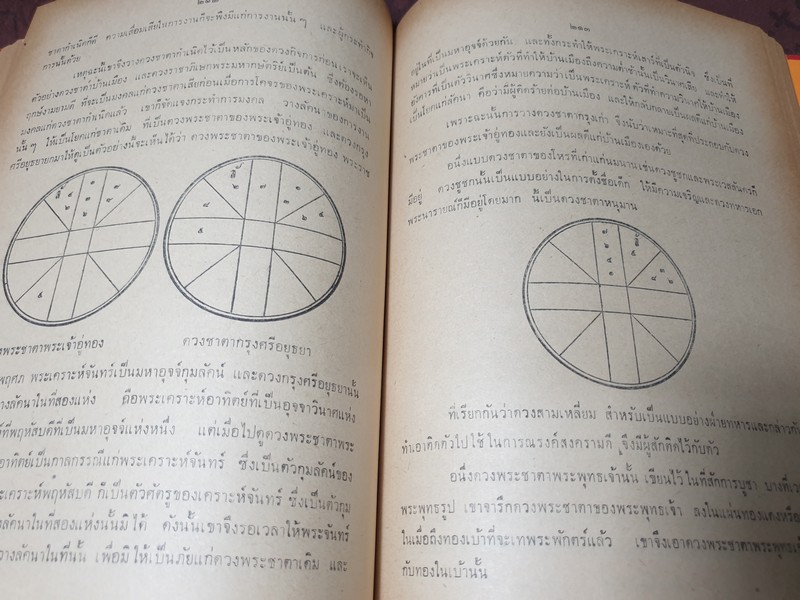 ๒๑๒
ชาตากำเนิดก็ดี ความเสื่อมเสียในการงานก็จะพึงมีแก่การงานนั้น ๆ และผู้กระทำกิจ
การนั้นด้วย
เหตุฉะนี้เขาจึงวางดวงชาตากำเนิดไว้เป็นหลักของดวงกิจการก่อน
ตัวอย่างดวงชาตาบ้านเมือง และดวงราชาภิเษกพระมหากษัตริย์เป็นต้น
ฤกษ์งามยามดี ที่จะเป็นมงคลแก่ดวงชาตาเสียก่อนเมื่อการโคจรของพระเคราะห์มาเป็น
มงคลแก่ดวงชาตากำเนิดแล้ว เขาก็จัดแจงกระทำการมงคล วางลัคนาของการงาน
นั้น ๆ ให้เป็นโยคแก่ชาตาเดิม ที่เป็นดวงพระชาตาของพระเจ้าอู่ทอง และดวงกรุง
ศรีอยุธยายกมาให้ดูเป็นตัวอย่างนี้จะเห็นได้ว่า ดวงพระชาตาของพระเจ้าอู่ทอง พระราช
พระชาตาพระเจ้าอู่ทอง
ดวงชาตากรุงศรีอยุธยา
พฤศภ พระเคราะห์จันทร์เป็นมหาอุจจ์กุมลัคน์ และดวงกรุงศรีอยุธยานั้น
วางลัคนาในที่สองแห่ง ถือพระเคราะห์อาทิตย์ที่เป็นอุจจาวินาศแห่ง
ที่พฤหัสบดีที่เป็นมหาอุจจ์แห่งหนึ่ง แต่เมื่อไปดูดวงพระชาตาพระ
อาทิตย์เป็นกาลกรรณีแก่พระเคราะห์จันทร์ ซึ่งเป็นตัวกุมลัคน์ของ
พระเคราะห์พฤหัสบดี ก็เป็นตัวศัตรูของเคราะห์จันทร์ ซึ่งเป็นตัวกุม
ลัคนาในที่สองแห่งนั้นมิได้ ดังนั้นเขาจึงรอเวลาให้พระจันทร์
วางลัคนาในที่นั้น เพื่อมิให้เป็นภัยแก่ดวงพระชาตาเดิม และ
๒๑๓
อยู่ในที่เป็นมหาอุจจ์ด้วยกัน และทั้งกระทำให้พระเคราะห์เสาร์ที่เป็นตัว
หมายว่าเป็นพระเคราะห์ตัวที่ทำให้บ้านเมืองถึงความต่ำช้านั้นเป็นวินาศเสีย และทำให้
อังคารที่เป็นตัววินาศซึ่งหมายความว่าเป็นพระเคราะห์ ตัวที่ทำความวินาศให้บ้านเมือง
เป็นโยคแก่ลัคนา คือว่ามีผู้คิดร้ายต่อบ้านเมือง และให้กลับกลายเป็นผลดีแก่บ้านเมือง
เพราะฉะนั้นการวางดวงชาตากรุงเก่า จึงนับว่าเหมาะที่สุดที่ประกอบกับดวง
พระชาตาของพระเจ้าอู่ทองและยังเป็นผลดีแก่บ้านเมืองเองด้วย
อนึ่งแบบดวงชาตาของโหรที่เก่าแก่นมนาน เช่นดวงชูชกและพระเวสสันดรก็
มีอยู่ ดวงชูชกนั้นเป็นแบบอย่างในการตั้งชื่อเด็ก ให้มีความเจริญและดวงทหารเอก
พระนารายณ์ก็มีอยู่โดยมาก นี้เป็นดวงชาตาหนุมาน
ที่เรียกกันว่าดวงสามเหลี่ยม สำหรับเป็นแบบอย่างฝ่ายทหารและกล่าวกัน
ทำเอาติดตัวไปใช้ในการณรงค์สงครามดี จึงมีผู้สักติดไว้กับตัว
อนึ่งดวงพระชาตาพระพุทธเจ้านั้น เขียนไว้ในที่สักการบูชา บางที
พระพุทธรูป เขาจารึกดวงพระชาตาของพระพุทธเจ้า ลงในแผ่นทองแดงหรือ
ในเมื่อถึงทองเบ้าที่จะเทพระพักตร์แล้ว เขาจึงเอาดวงพระชาตาพระพุทธเจ้า
กับทองในเบ้านั้น